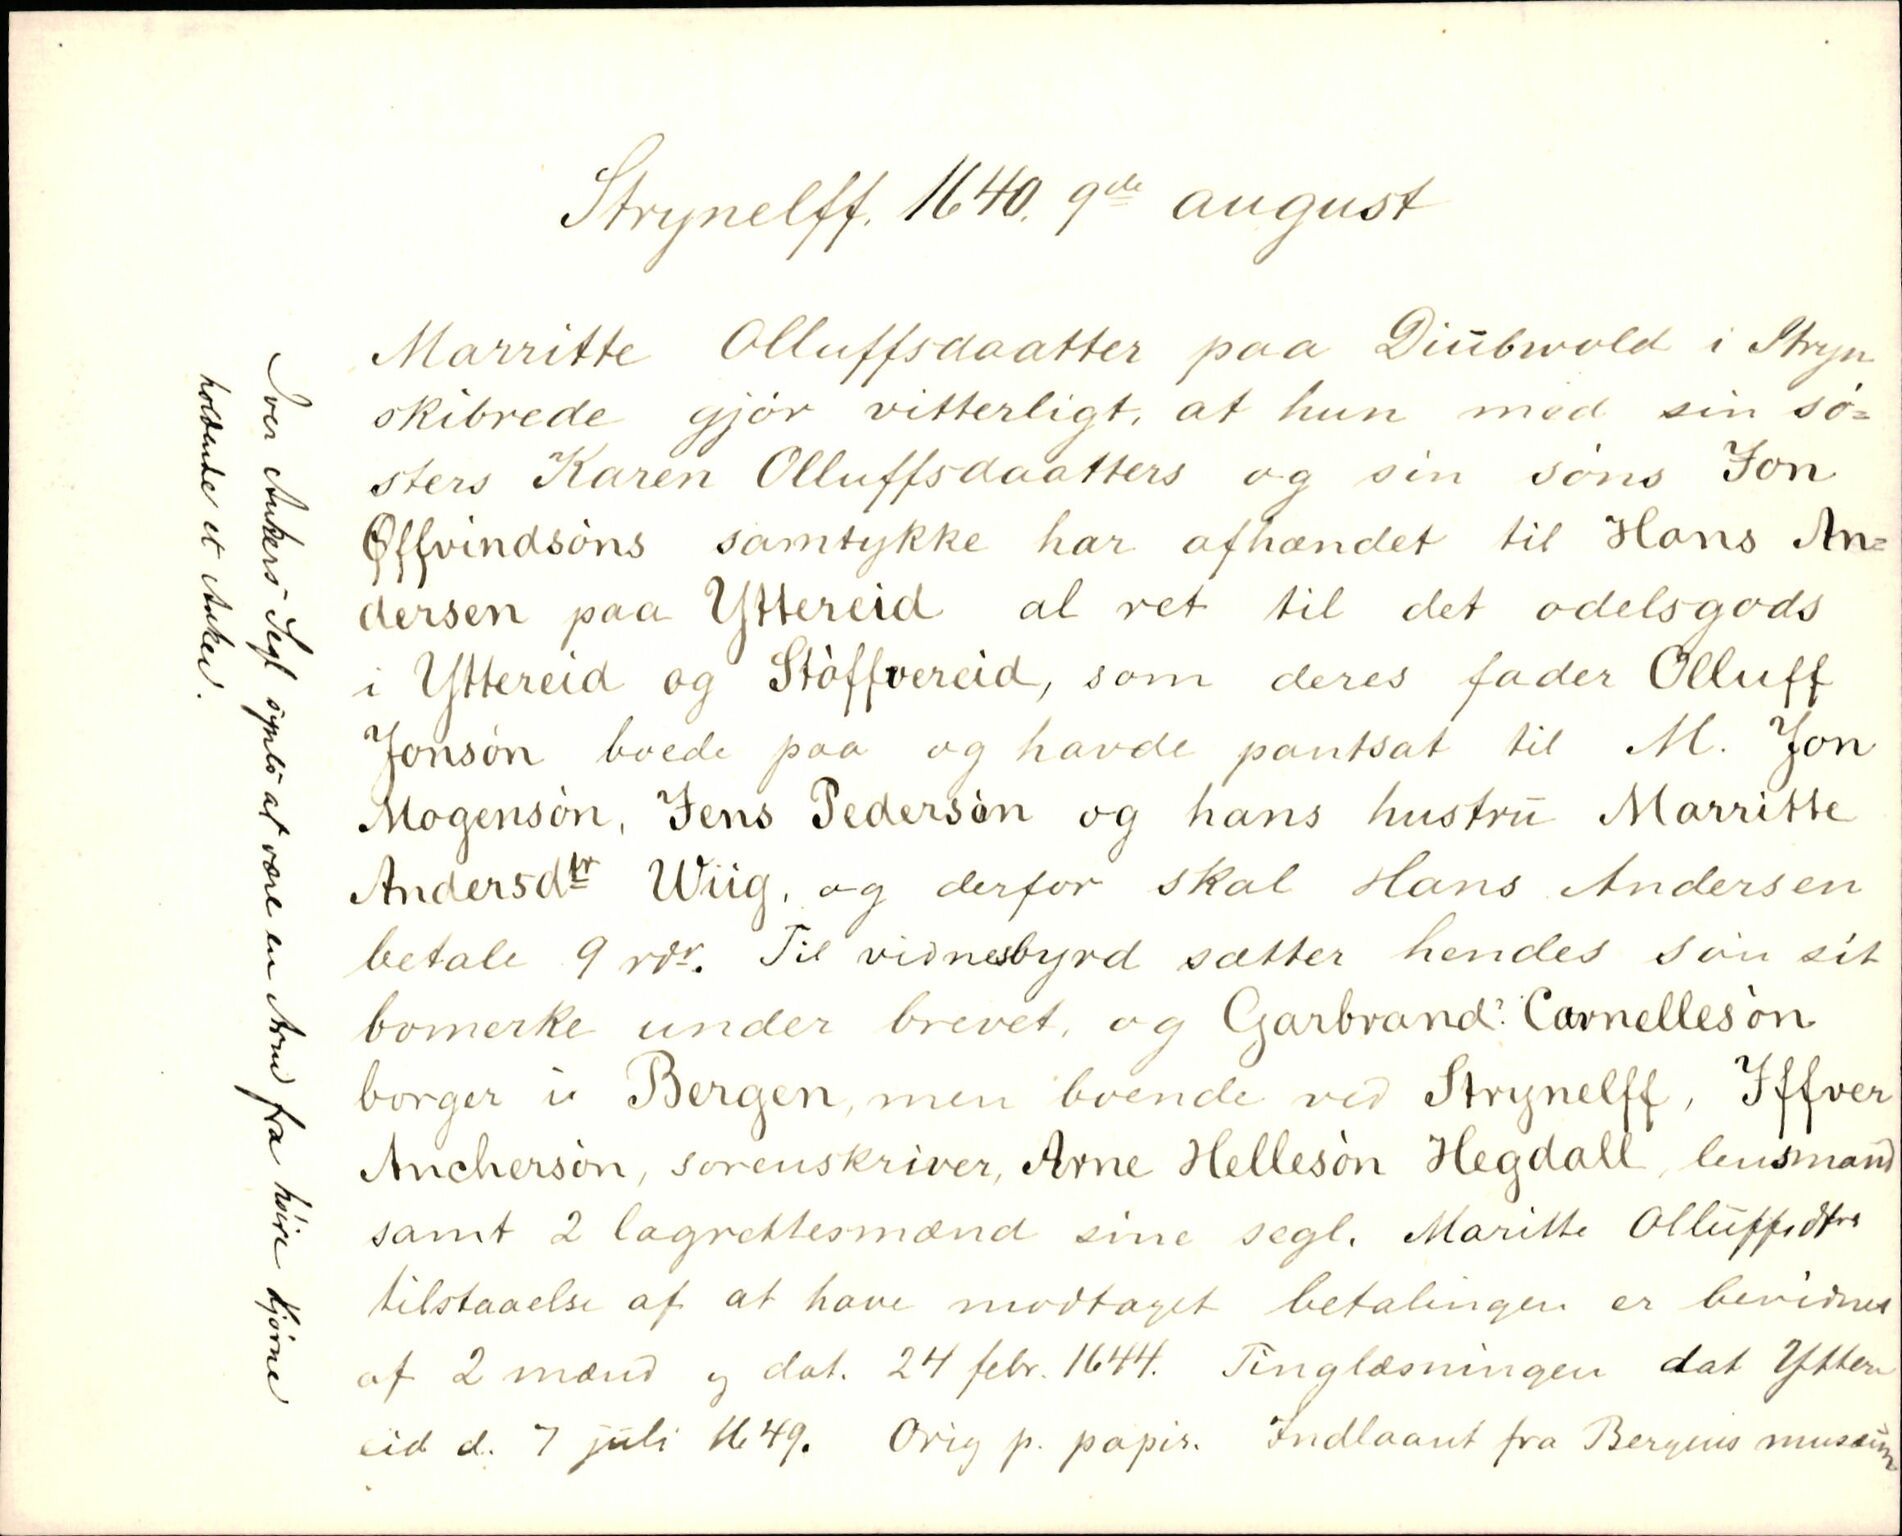 Strynelff. 1640. 9de august
Marritte Olluffsdaatter paa Diŭbwold i Stryn
skibrede gjör vitterligt, at hun med sin sö=
sters Karen Olluffsdaatters og sin söns Jon
Øffvindsöns samtykke har afhændet til Hans An=
dersen paa Yttereid al ret til det odelsgods
i Yttereid og Stöffvereid, som deres fader Olluff
Jonsön boede paa og havde pantsat til M. Jon
Mogensön, Jens Pedersön og hans hustrŭ Marritte
Andersdtr Wiig, og derfor skal Hans Andersen
betale 9 rdr. Til vidnesbyrd sætter hendes sön sit
bomerke under brevet, og Garbrand? Carnellesön
borger i Bergen, men boende ved Strynelff, Iffver
Anchersön, sorenskriver, Arne Hellesön Hegdall, lensmand
samt 2 lagrettesmænd sine segl. Maritte Ollŭffsdtrs
tilstaaelse af at have modtaget betalingen er bevidnes
af 2 mænd og dat. 24 febr. 1644. Tinglæsningen dat Ytter
eid d. 7 jŭli 1649. Orig p. papir. Indlaant fra Bergens musæŭm
Iver Ankers Segl synes at være en Arm fra höire Hjörne
holdende et Anker.